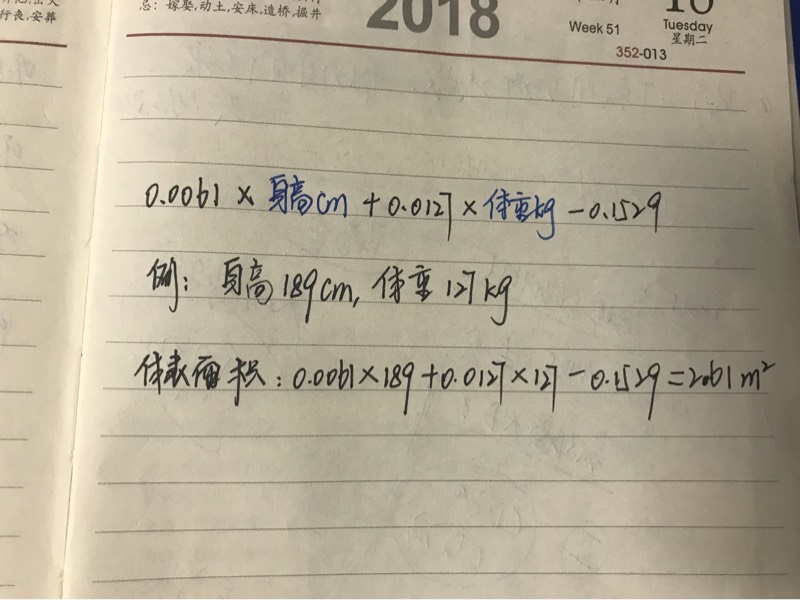 行丧,安葬
忌: 嫁娶,动土,安床,造桥,掘井
2018
Week 51
Tuesday
星期二
352-013
0.0061 × 身高cm + 0.0127 × 体重kg - 0.1529
例: 身高189cm, 体重127kg
体表面积: 0.0061×189+0.0127×127-0.1529=2.61m²